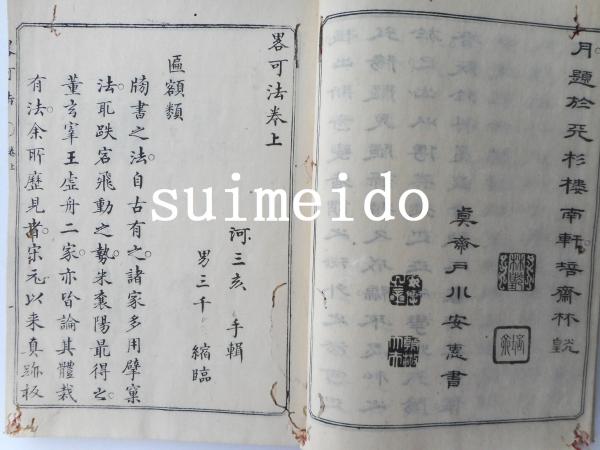 月題於天杉楼南軒培齋林皝
貞齋戸川安惠書
畧可法卷上
匾額類
河三亥 手輯
男三千 縮臨
牓書之法自古有之諸家多用擘窠
法取跌宕飛動之勢米襄陽最得之
董玄宰王虚舟二家亦皆論其體裁
有法余所歷見者宋元以来真跡板
suimeido